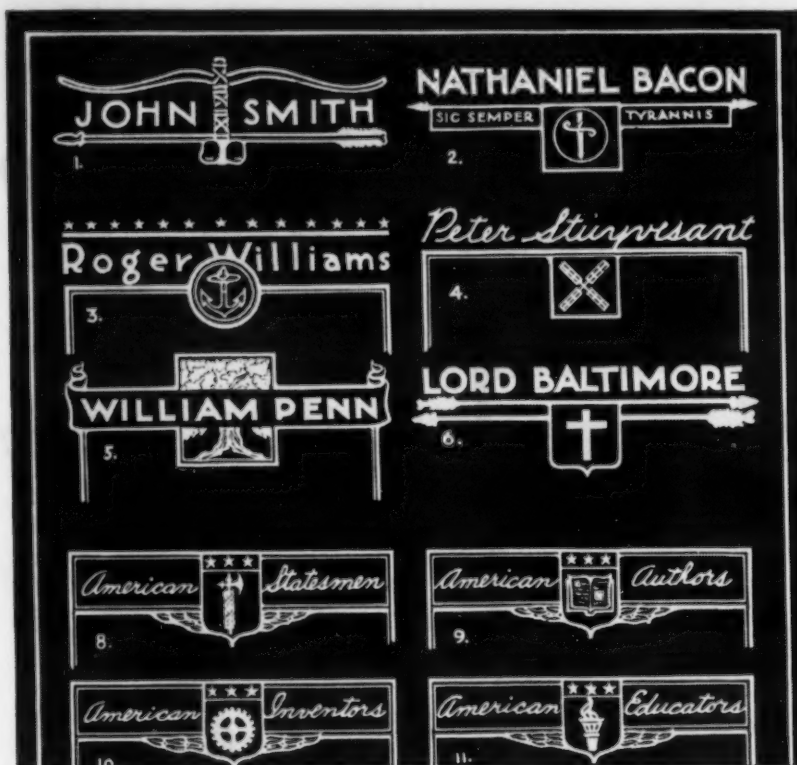 JOHN SMITH
1.
NATHANIEL BACON
SIC SEMPER TYRANNIS
2.
Roger Williams
3.
Peter Stuyvesant
4.
WILLIAM PENN
5.
LORD BALTIMORE
6.
American Statesmen
8.
American Authors
9.
American Inventors
10.
American Educators
11.